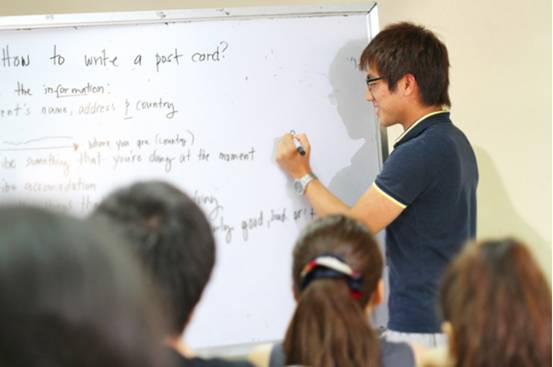 How to write a post card?
the information:
ent's name, address & country
where you are (country)
be something that you're doing at the moment
be accomodation
good, bad or